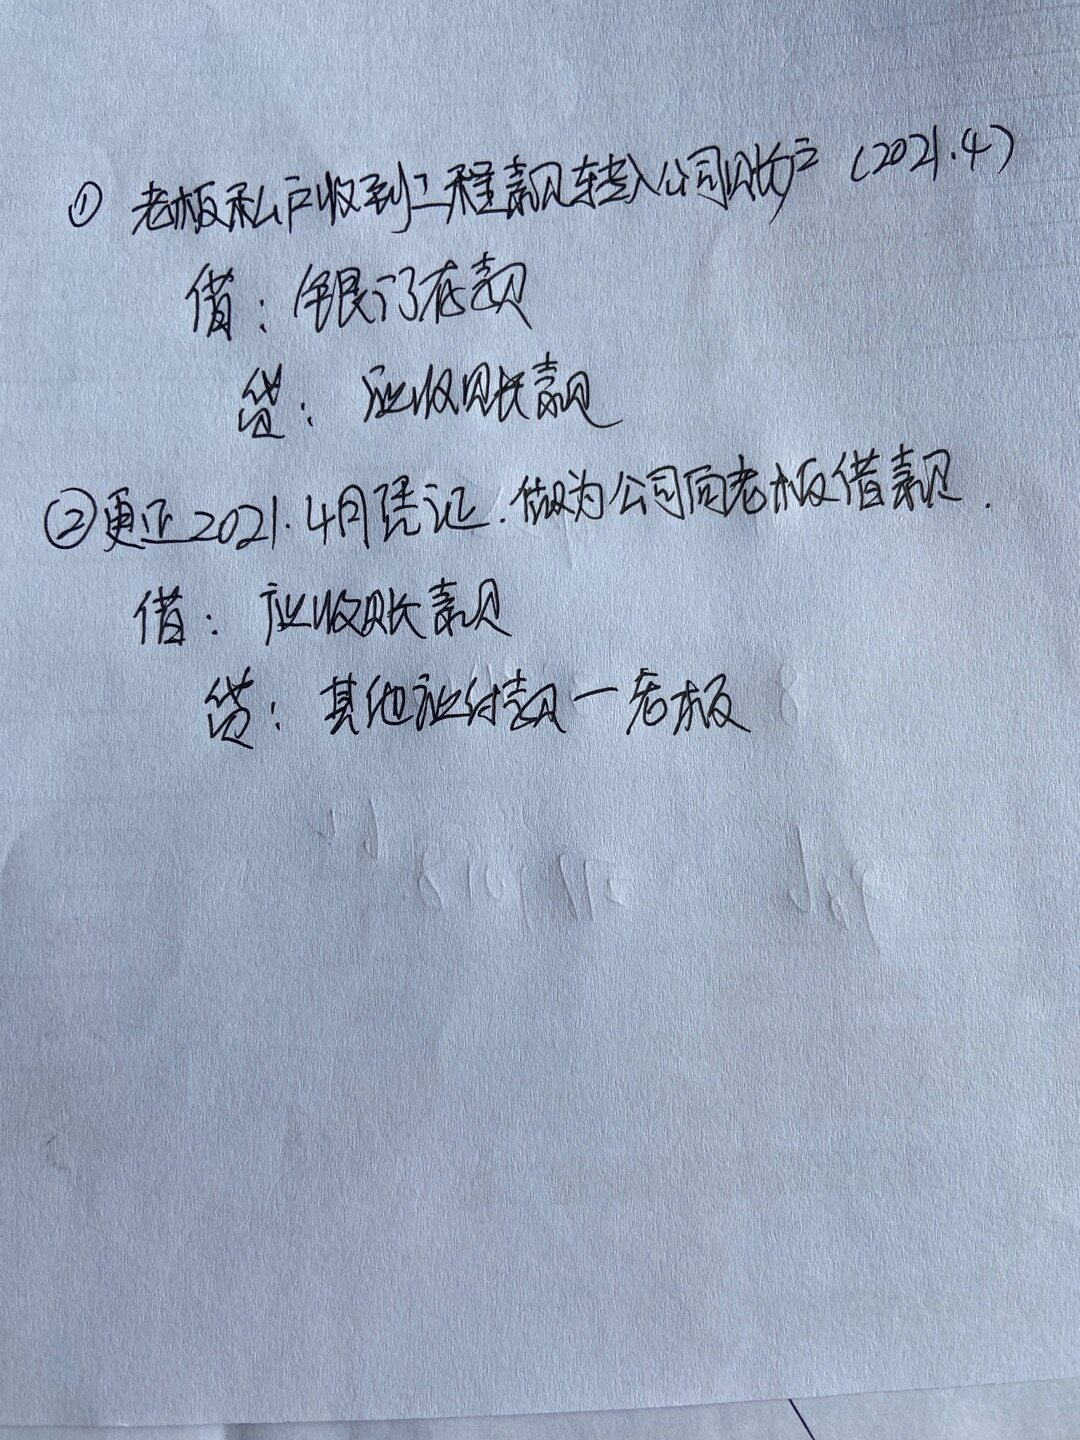 ① 老板私户收到工程款转入公司账户（2021.4）
借：银行存款
贷：应收账款
②更正2021.4月凭证.做为公司向老板借款.
借：应收账款
贷：其他应付款—老板